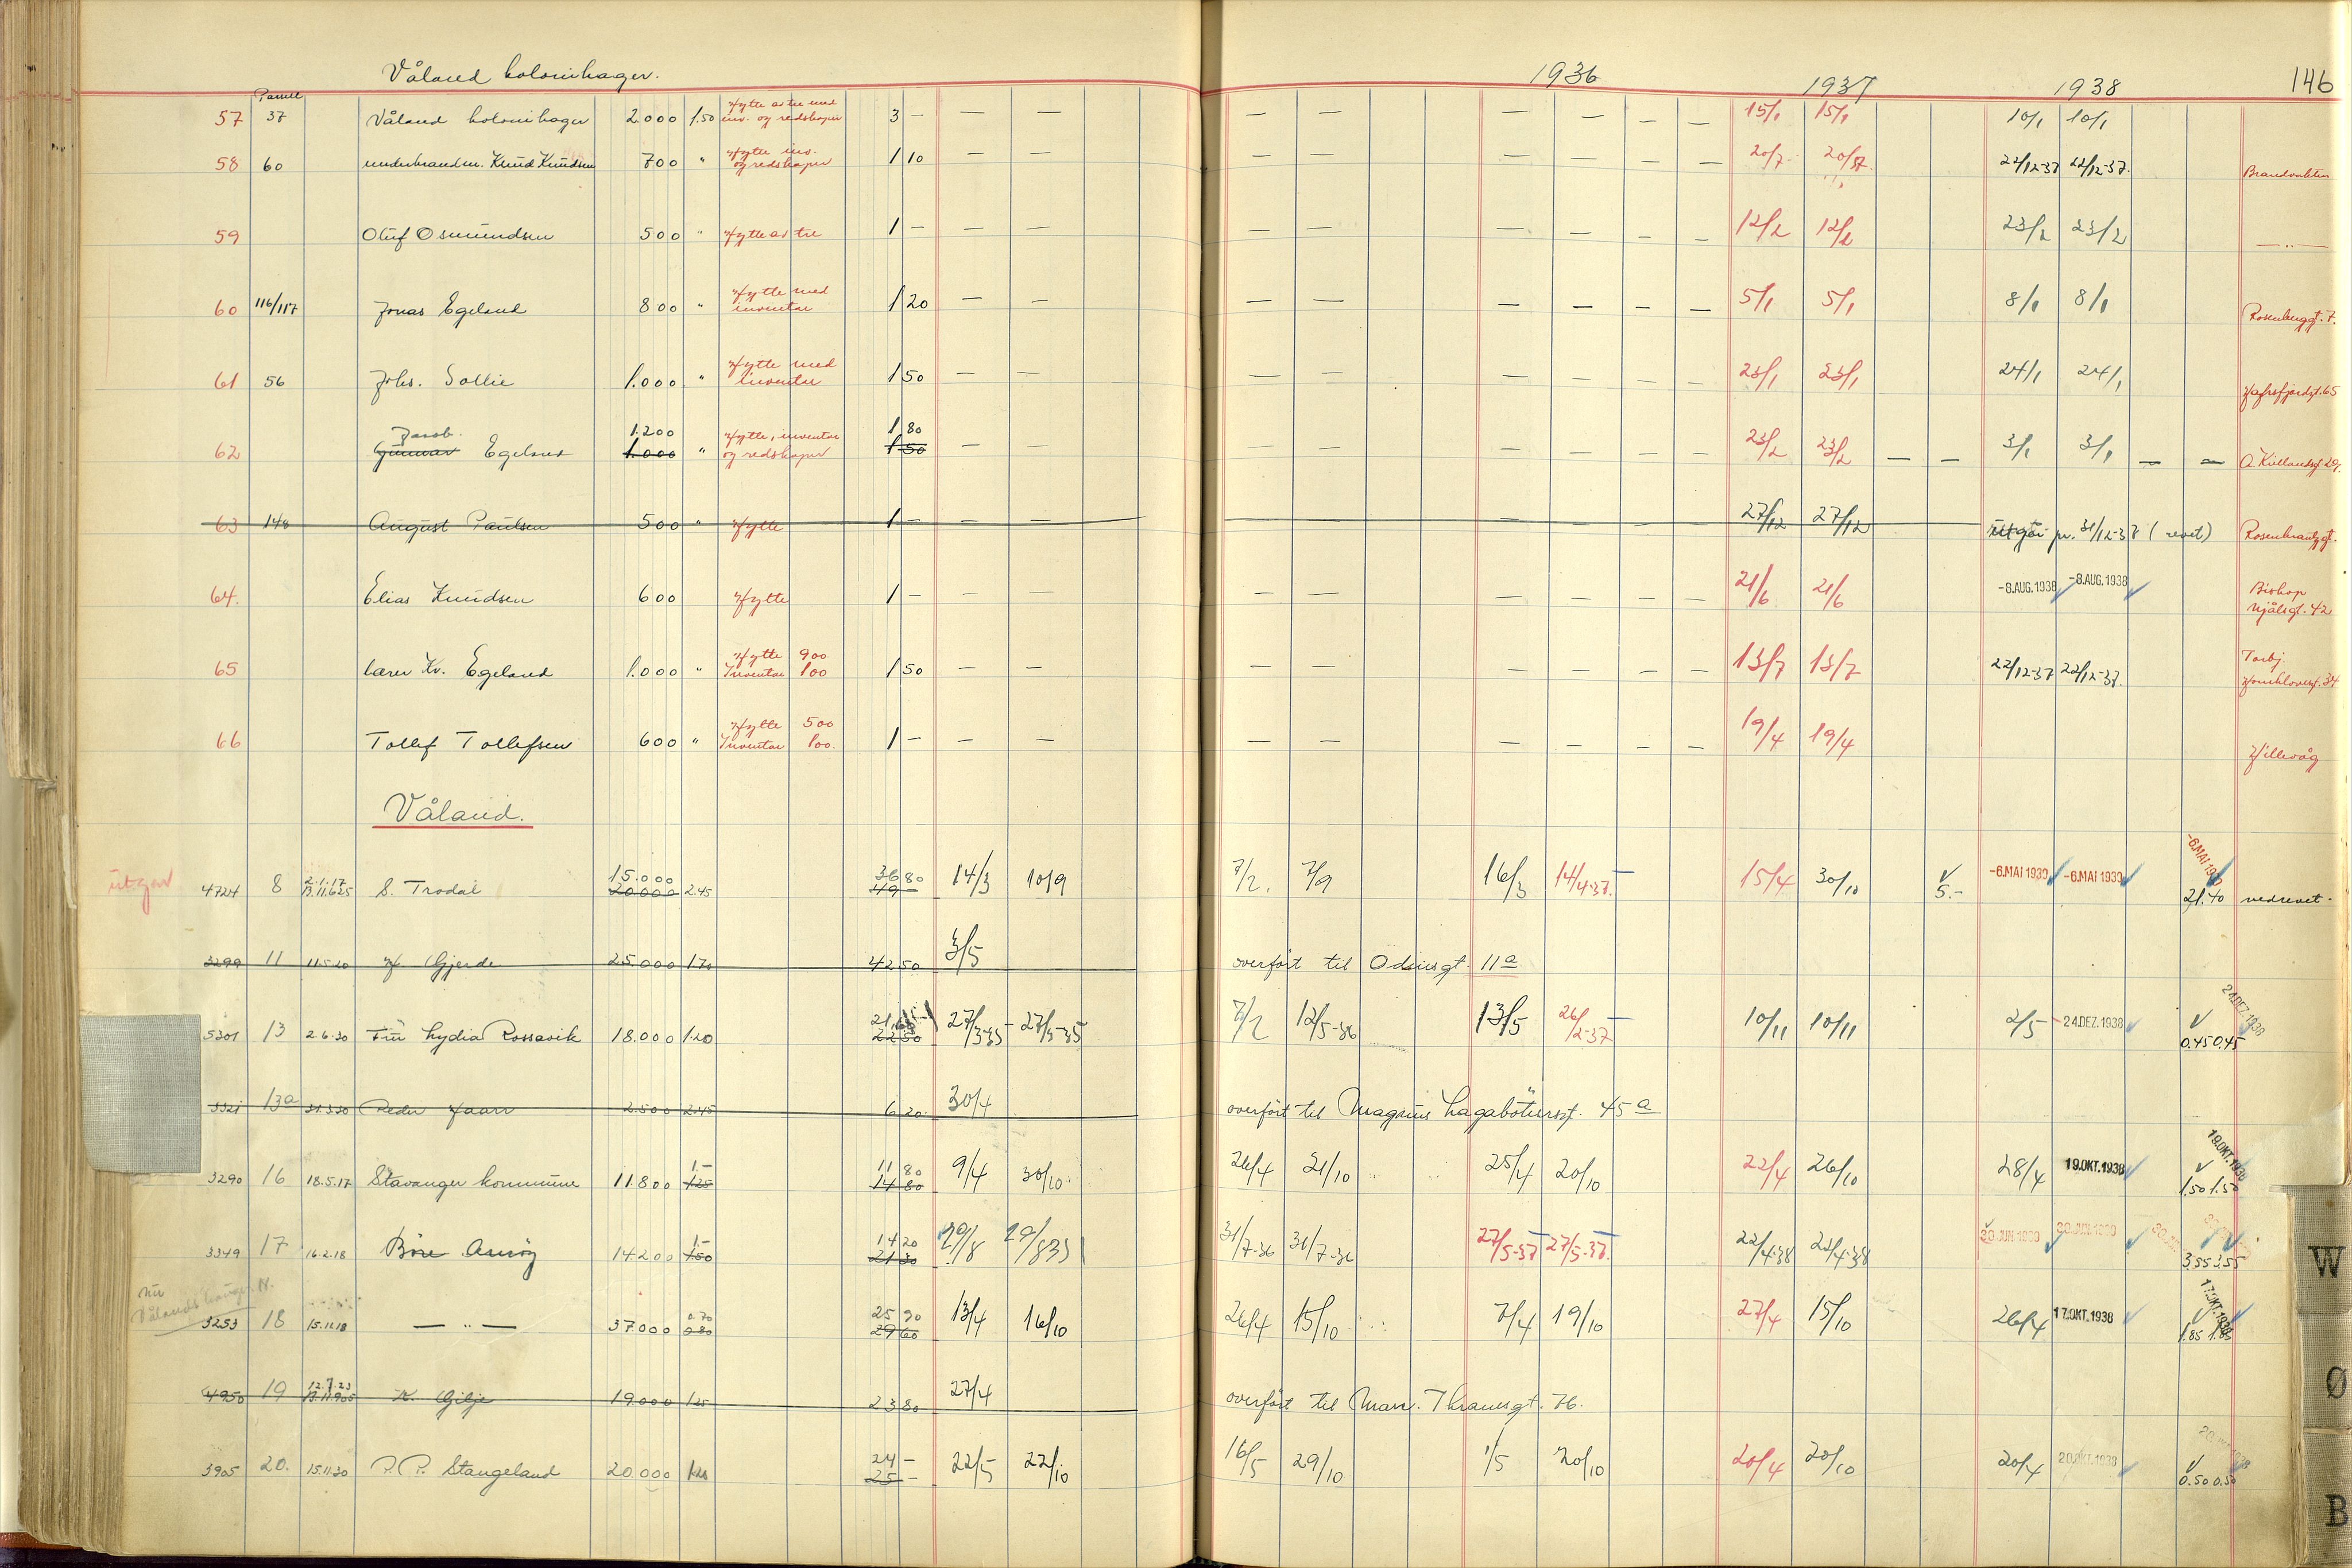 Våland kolonihager. 1936 1937 1938 146
Parsell
57 37 Våland kolonihager 2.000 1.50 Hytte av tre med inv. og redskaper 3 — — — — — — — — — 15/1 15/1 10/1 10/1
58 60 underbrandm. Knud Knudsen 700 " Hytte inv. og redskaper 1 10 — — — — — — — — 20/7 20/7 22/12-37 22/12-37. Brandvakten
59 Oluf Osmundsen 500 " Hytte av tre 1 — — — — — — — — — 12/2 12/2 23/2 23/2 — " —
60 116/117 Jonas Egeland 800 " Hytte med inventar 1 20 — — — — — — — — 5/1 5/1 8/1 8/1 Rosenberggt. 7.
61 56 Johs. Sollie 1.000 " Hytte med inventar 1 50 — — — — — — — — 23/1 23/1 24/1 24/1 Hafrsfjordgt. 65
62 Jacob Gunnar Egeland 1.200 1.000 " Hytte, inventar og redskaper 1 80 1 50 — — — — — — — — 23/2 23/2 — — 3/1 3/1 — — A. Kiellandsgt. 20.
63 148 August Paulsen 500 " Hytte 1 — — — — 27/12 27/12 utgår pr. 31/12-37 (revet) Rosenkrantzgt.
64. Elias Knudsen 600 Hytte 1 — — — — — — — — — 21/6 21/6 -8.AUG.1938 -8.AUG.1938 Bishop Njålsgt. 42
65 lærer Kr. Egeland 1.000 " Hytte 900 Inventar 100 1 50 — — — — — — — — 13/7 13/7 22/12-37 22/12-37. Torbj. Hornklovesgt. 34
66 Tollef Tollefsen 600 " Hytte 500 Inventar 100. 1 — — — — — — — — — 19/4 19/4 Hillevåg
Våland.
utgår 4724 8 2.1.17 13.11.625 S. Trodal 15.000 20.000 2.45 36 80 49 — 14/3 10/9 7/2. 7/9 16/3 14/4-37. 15/4 30/10 5.- -6.MAI 1939 -6.MAI 1939 -6.MAI 1939 21.40 nedrevet.
3299 11 11.5.20 H Gjerde 25.000 1.70 42 50 3/5 overført til Odinsgt. 11a
5301 13 2.6.30 Fru Lydia Rossavik 18.000 1.20 21.60 22 50 27/3-35 - 27/3-35 7/2 12/5-36 13/5 26/2-37 10/11 10/11 2/5 -24.DEZ.1938 24.DEZ.1938 0.45 0.45
3321 13a 31.3.30 Peder Haarr 2.500 2.45 6 20 30/4 overført til Magnus Lagabøtersgt. 45a
3290 16 18.5.17 Stavanger kommune 11.800 1.- 1.25 11 80 14 80 9/4 30/10 26/4 31/10 25/4 20/10 22/4 26/10 28/4 19.OKT.1938 19.OKT.1938 1.50 1.50
3349 17 16.2.18 Børe Amrøy 14.200 1.- 1.50 14 20 21 30 29/8 29/8 35 31/7-36 31/7-36 27/5-37 27/5-37. 22/4-38 22/4-38 30.JUN 1939 30.JUN.1939 3.55 3.55
nu Vålandshaugen
3253 18 15.11.18 — " — 37.000 0.70 0.80 25 90 29 60 13/4 16/10 26/4 15/10 7/4 19/10 27/4 15/10 26/4 17.OKT.1938 17.OKT.1938 1.85 1.85
4950 19 12.7.23 13.11.905 K. Gilje 19.000 1.25 23 80 27/4 overført til Marc. Thranesgt. 76.
3905 20. 15.11.30 P. P. Stangeland 20.000 1.20 24 — 25 — 22/5 22/10 16/5 29/10 1/5 20/10 20/4 20/10 20/4 20.OKT.1938 0.50 0.50
W
Ø
B